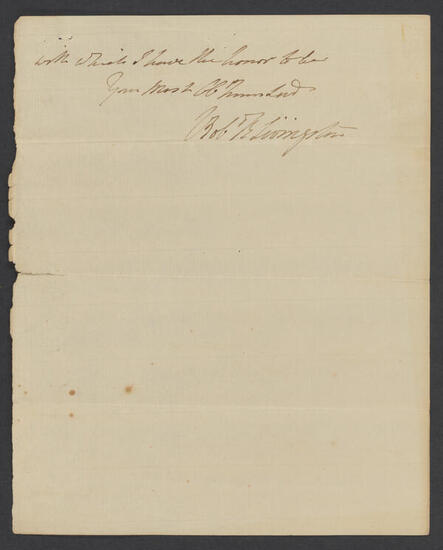 with which I have the honor to be
Your Most Ob Hum Servt
Rob R Livingston